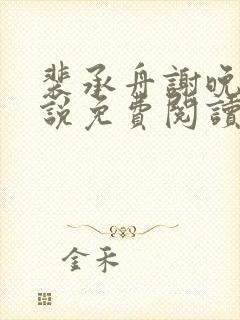 裴承舟謝晚
說免費閱讀
金禾